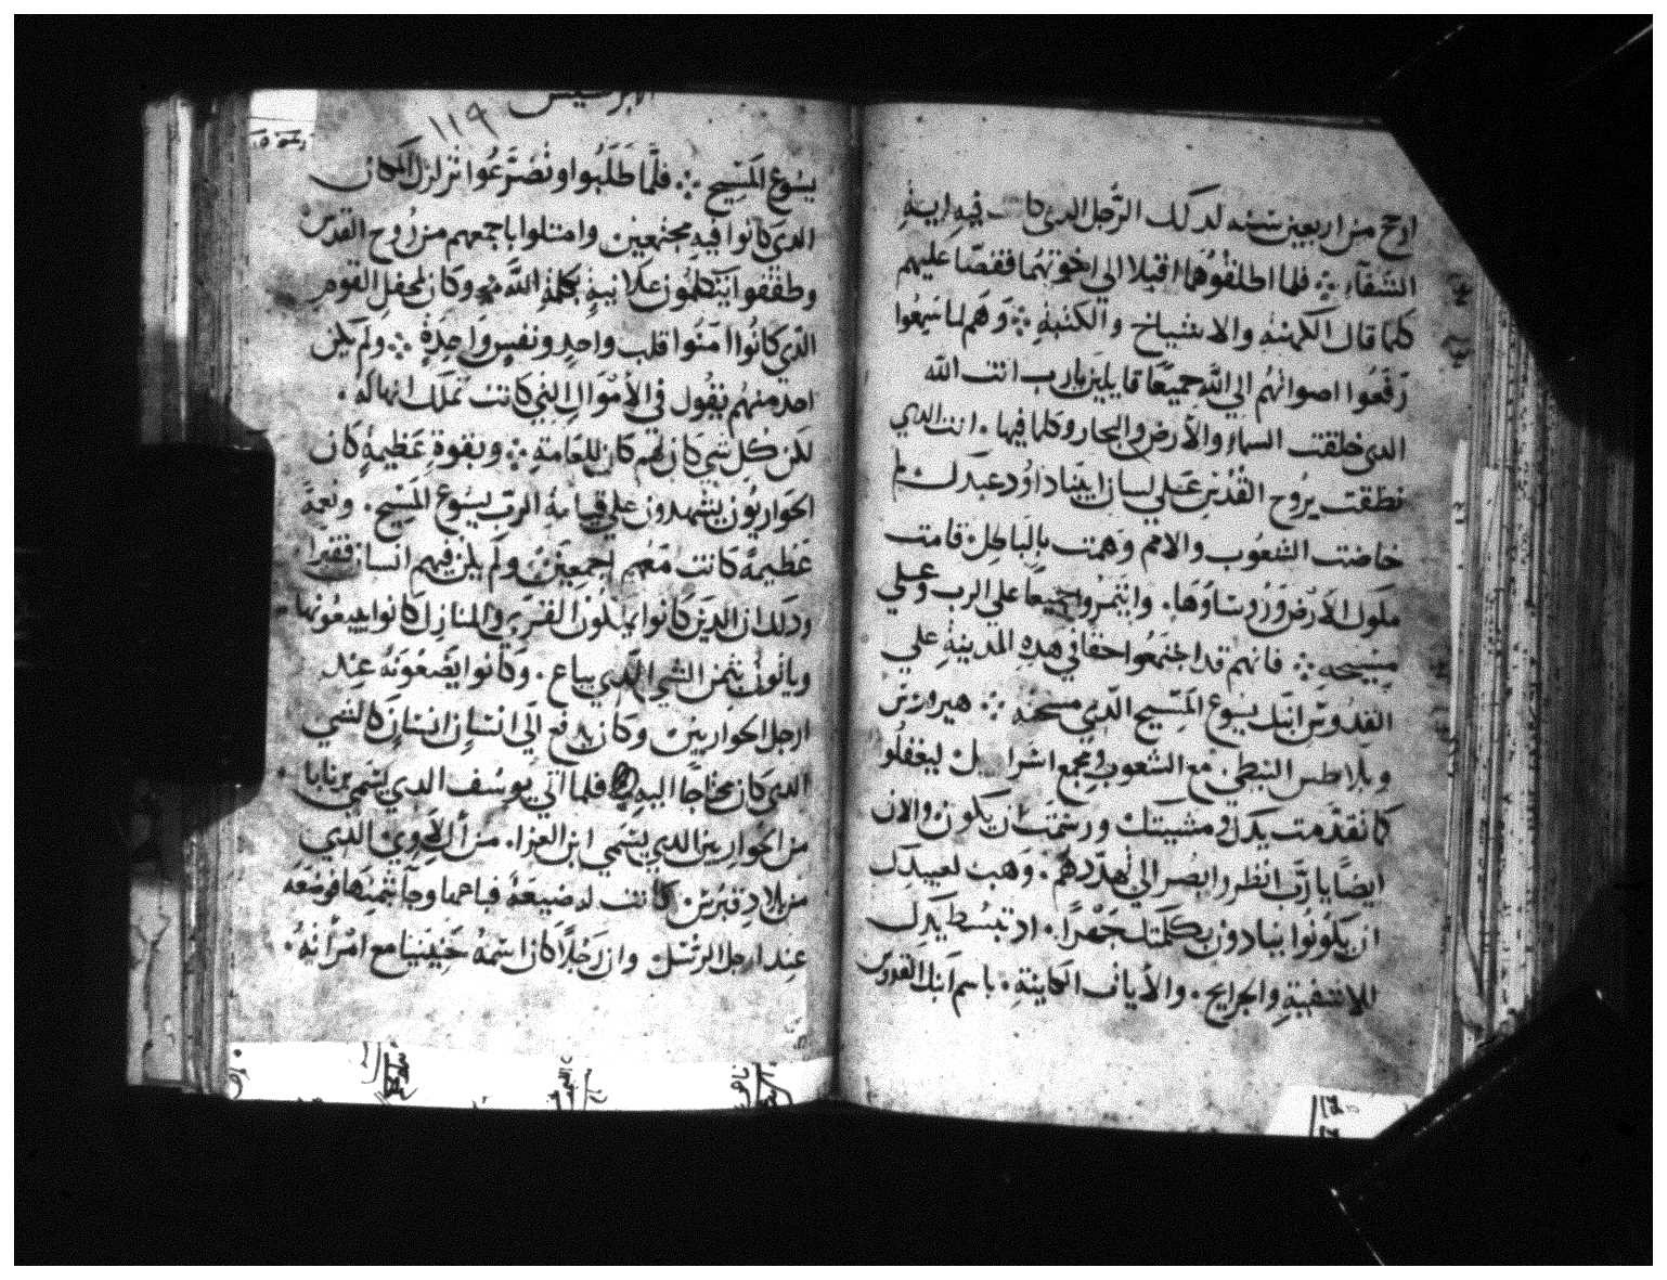 ارجح من اربعين سنه لدلك الرجل الدي كانت فيه اية
الشفآء ፨ فلما اطلقوهما اقبلا الي اخوتهما فقصا عليهم
كلما قال الكهنة والاشياخ والكتبة ፨ وهم لما سمعوا
رفعوا اصواتهم الي الله جميعا قايلين يارب انت الله
الدي خلقت السماء والارض والبحار وكلما فيها . انت الدي
نطقت بروح القدس علي لسان ابينا داود عبدك لم
خاضت الشعوب والامم وهمت بالباطل قامت
ملوك الارض وروساوها . وايتمروا جميعا علي الرب وعلي
مسيحه ፨ فانهم قد اجتمعوا حقا في هده المدينة علي
القدوس ابنك يسوع المسيح الدي مسحته ፨ هيرودس
وبلاطس النبطي . مع الشعوب ومجمع اسراييل ليفعلو
كما تقدمت يدك ومشيتك ورسمت ان يكون والان
ايضا يارب انظر وابصر الي تهددهم . وهب لعبيدك
ان يكونوا ينادون بكلمتك جهرا . اد تبسط يدك
للاشفية والجرايح . والايات الكاينة . باسم ابنك القدوس
الابركسيس
١١٩
يسوع المسيح ፨ فلما طلبوا وتضرعوا تزلزل المكان
الدي كانوا فيه مجتمعين وامتلوا باجمعهم من روح القدس
وطفقوا يتكلمون علانية بكلمة الله ፨ وكان لمحفل القوم
الدي كانوا امنوا قلب واحد ونفس واحدة ፨ ولم يكن
احد منهم يقول في الاموال التي كانت تملك انها له .
لكن كل شي كان لهم كان للعامة ፨ وبقوة عظيمة كان
الحواريون يشهدون علي قيامة الرب يسوع المسيح . ونعمة
عظيمة كانت معهم اجمعين ولم يكن فيهم انسان فقيرا
ودلك ان الدين كانوا يملكون القري والمنازل كانوا يبيعونها
وياتون بثمن الشي الدي يباع . وكانوا يضعونه عند
ارجل الحواريين وكان يدفع الي انسان انسان كالشي
الدي كان محتاجا اليه فلما اتي يوسف الدي يسمي برنابا
من الحواريين الدي يسمي ابن العزا . من ال لاوي الدي
من بلاد قبرس كانت له ضيعة فباعها وجآ بثمنها فوضعه
عند ارجل الرسل وان رجلا كان اسمه حنينيا مع امراته .